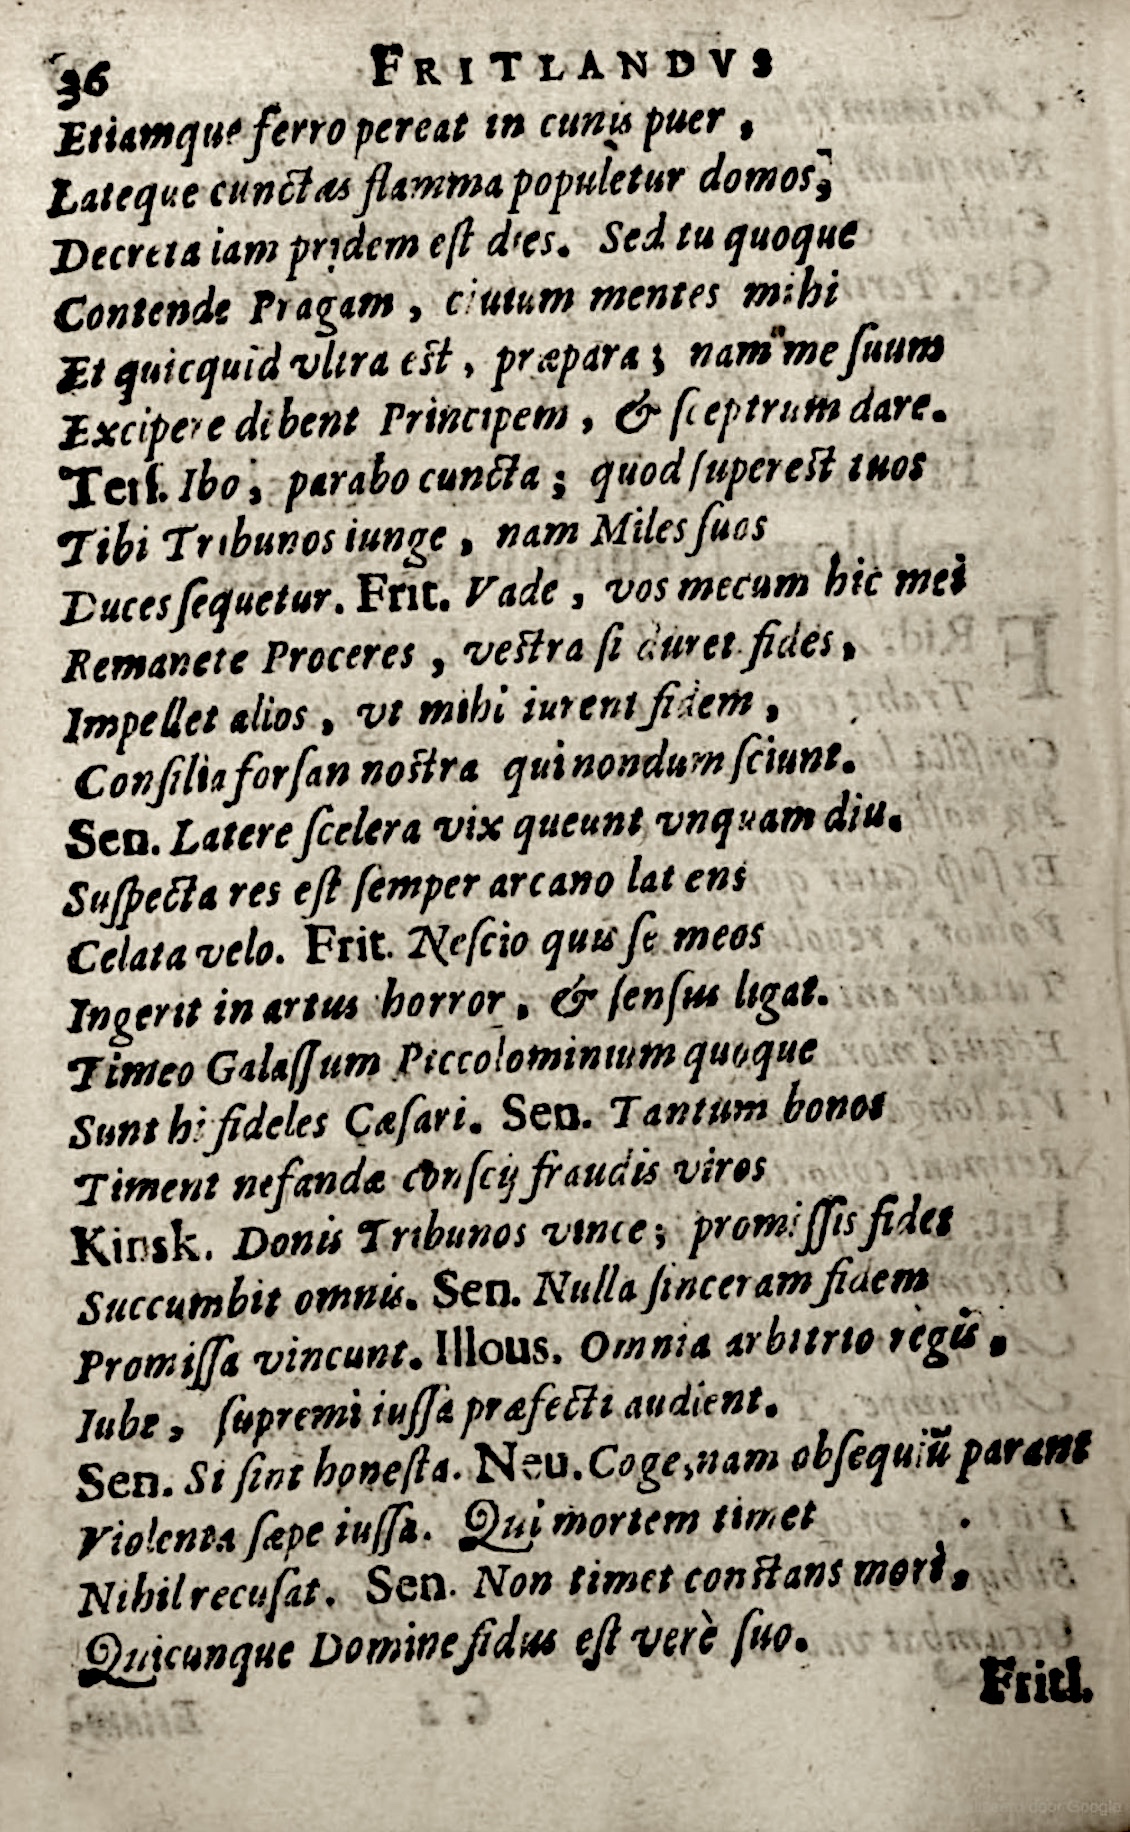 36 FRITLANDVS
Etiamque ferro pereat in cunis puer,
Lateque cunctas flamma populètur domos;
Decreta iam pridem est dies. Sed tu quoque
Contende Pragam, ciuium mentes mihi
Et quicquid vltra est, præpara; nam me ſuum
Excipere debent Principem, & ſceptrum dare.
Terſ. Ibo, parabo cuncta; quod ſupereſt tuos
Tibi Tribunos iunge, nam Miles ſuos
Duces ſequetur. Frit. Vade, vos mecum hic meì
Remanete Proceres, veſtra ſi duret fides,
Impellet alios, vt mihi iurent fidem,
Conſilia forſan noſtra qui nondum ſciunt.
Sen. Latere ſcelera vix queunt vnquam diu.
Suſpecta res eſt ſemper arcano latens
Celata velo. Frit. Neſcio quis ſe meos
Ingerit in artus horror, & ſenſus ligat.
Timeo Galaſſum Piccolominium quoque
Sunt hi fideles Cæſari. Sen. Tantum bonos
Timent nefandæ conſcij fraudis viros
Kinsk. Donis Tribunos vince; promiſſis fides
Succumbit omnis. Sen. Nulla ſinceram fidem
Promiſſa vincunt. Illous. Omnia arbitrio regis,
Iube, ſupremi iuſſa præfecti audient.
Sen. Si ſint honeſta. Neu. Coge, nam obſequiũ parant
Violenta ſæpe iuſſa. Qui mortem timet
Nihil recuſat. Sen. Non timet conſtans morì,
Quicunque Domine fidus eſt verè ſuo.
Fritl.